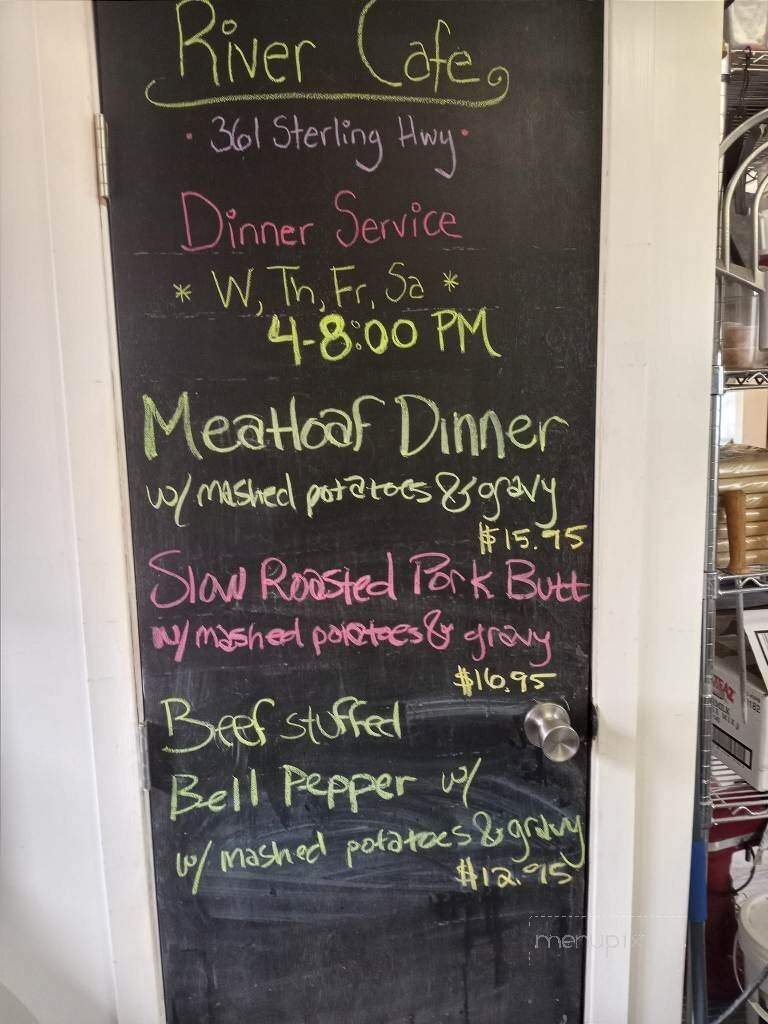 River Cafe
· 361 Sterling Hwy ·
Dinner Service
* W, Th, Fr, Sa *
4-8:00 PM
Meatloaf Dinner
w/ mashed potatoes & gravy
$15.95
Slow Roasted Pork Butt
w/ mashed potatoes & gravy
$16.95
Beef stuffed
Bell Pepper w/
w/ mashed potatoes & gravy
$12.95
menupix